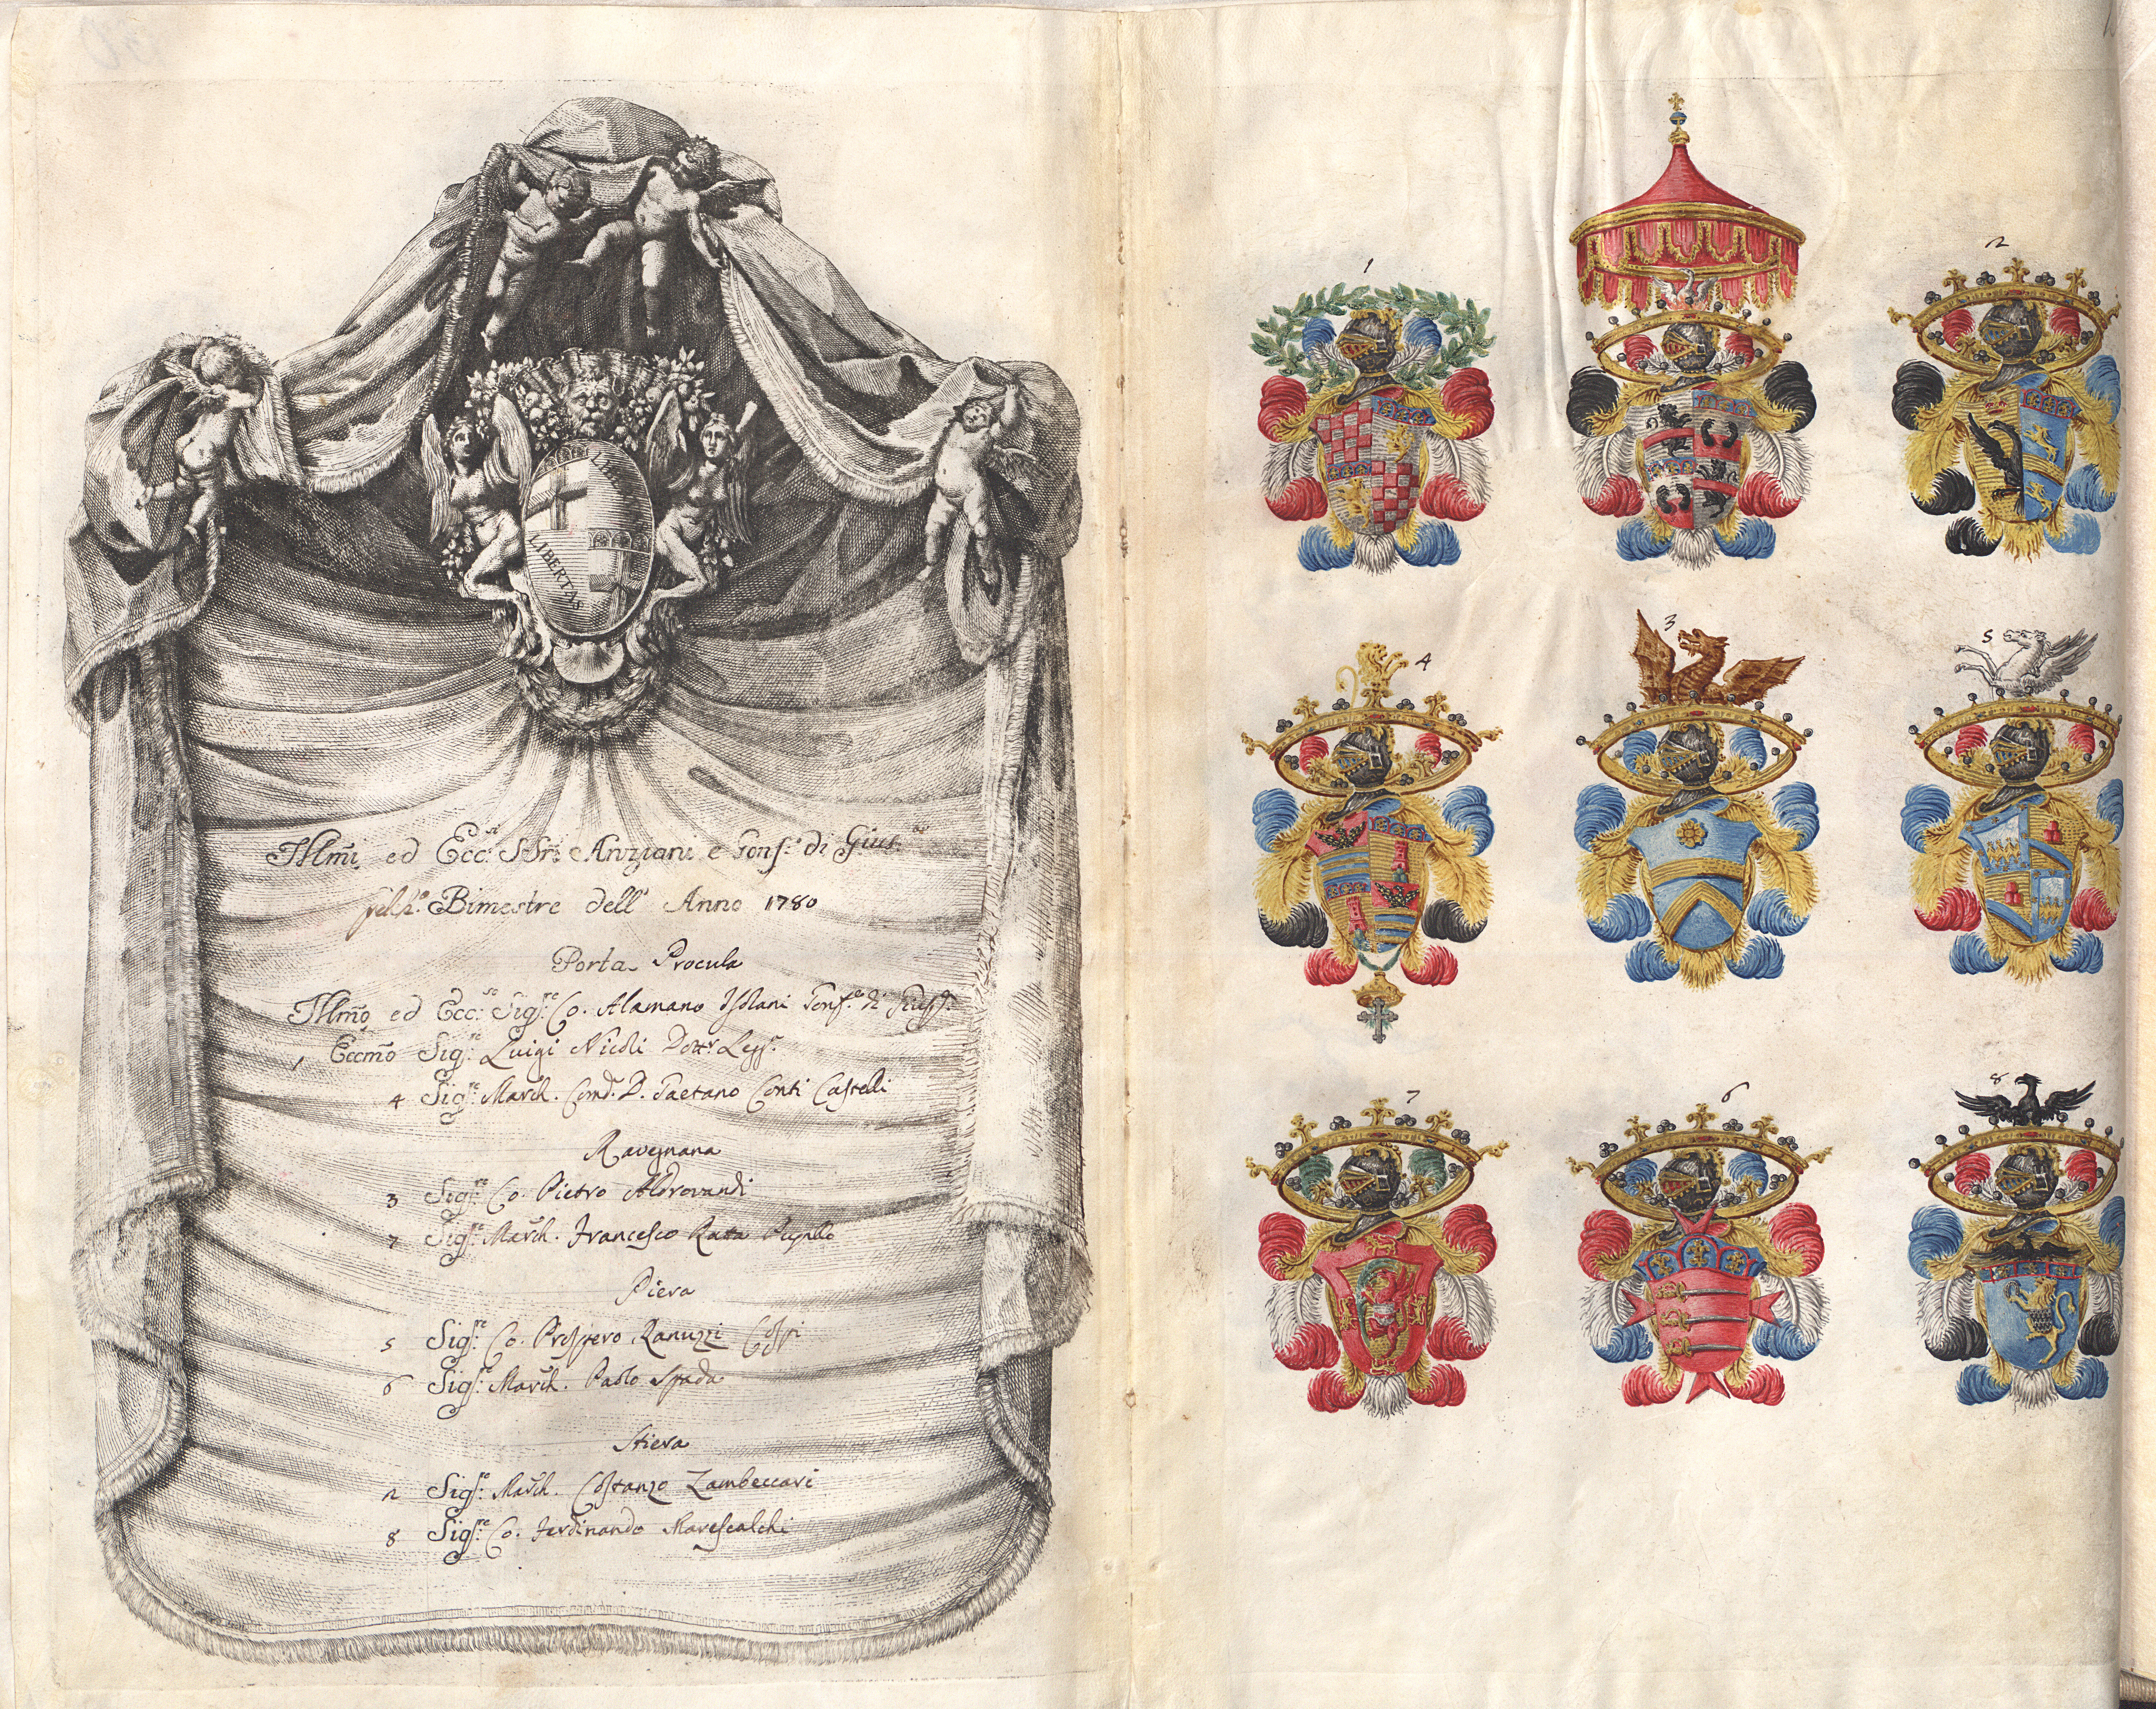 LIBERTAS
LIBERTAS
Illm̃i ed Ecc:si SSri: Anziani e Gonf:e di Gius:
Bimestre dell' Anno 1780
Porta Procula
Illm̃o ed Ecc:so Sig:re Co. Alamano Isolani Gonf:e di Giusta
1 Eccm̃o Sig:re Luigi Nicoli Dottr Legg:
4 Sig:re March. Comd. D. Gaetano Conti Castelli
Ravegnana
3 Sig:re Co. Pietro Aldrovandi
7 Sig:re March. Francesco Ratta
Piera
5 Sig:re Co. Prospero Ranuzzi Cospi
6 Sig:re March. Paolo Spada
Stiera
2 Sig:re March. Costanzo Zambeccari
8 Sig:re Co. Ferdinando Marescalchi
1
2
4
3
5
7
6
8